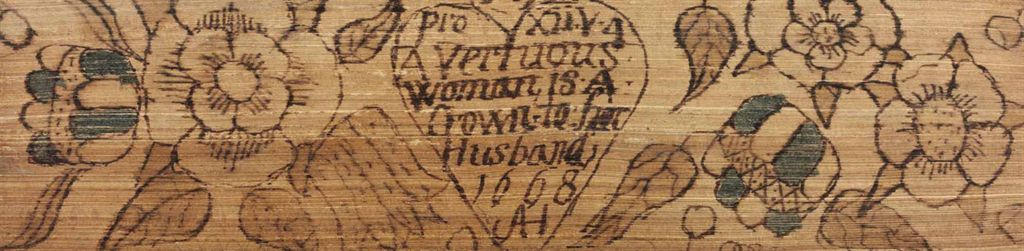 Pro XIIV A
A Vertuous
Woman is A
Crown to her
Husband
1668
AI